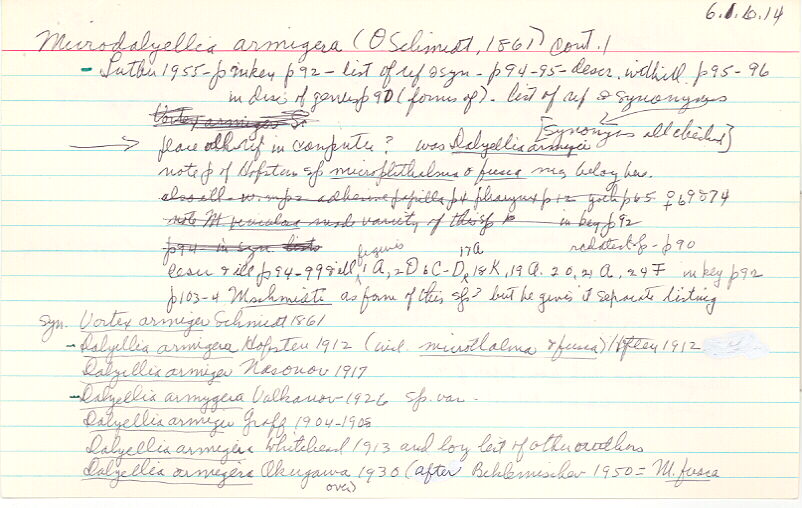 6.1.10.14
Microdalyellia armigera (O Schmidt, 1861) cont.
- Luther 1955 - p in key p92 - list of ref & syn - p94-95 - descr. with ill. p95-96
in disc of genus p90 (forms of). list of ref & synonyms
Vortex armiger Sc
[synonyms all checked]
place all ref in computer? was Dalyellia armigera
note p of Hofsten sp microphthalma & fusca may belong here.
also all - adhesive papilla p4 pharynx p12 p65 ♀ 69 & 74
note M made variety of this sp in key p92
p94 in syn lists redated sp - p90
descr & ill p94-99 & ill figures 1A, 2D & C-D, 17A 18K, 19A. 20, 21A, 24F in key p92
p103-4 M schmidti as form of this sp? but he gives it separate listing
syn. Vortex armiger Schmidt 1861
- Dalyellia armigera Hofsten 1912 (incl. microthalma & fusca) Hofsten 1912
Dalyellia armiger Nasonov 1917
- Dalyellia armygera Valkanov 1926 sp. var.
Dalyellia armiger Graff 1904-1905
Dalyellia armigera Whitehead 1913 and long list of other authors
Dalyellia armigera Okugawa 1930 (after 1950 = M. fusca
over)